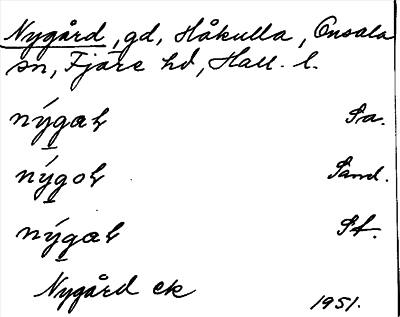 Nygård, gd, Håkulla, Onsala
sn, Fjäre hd, Hall. l.
nýgaɫ Sa.
nýgoɫ Sand.
nýgaɫ Sf.
Nygård ek
1951.